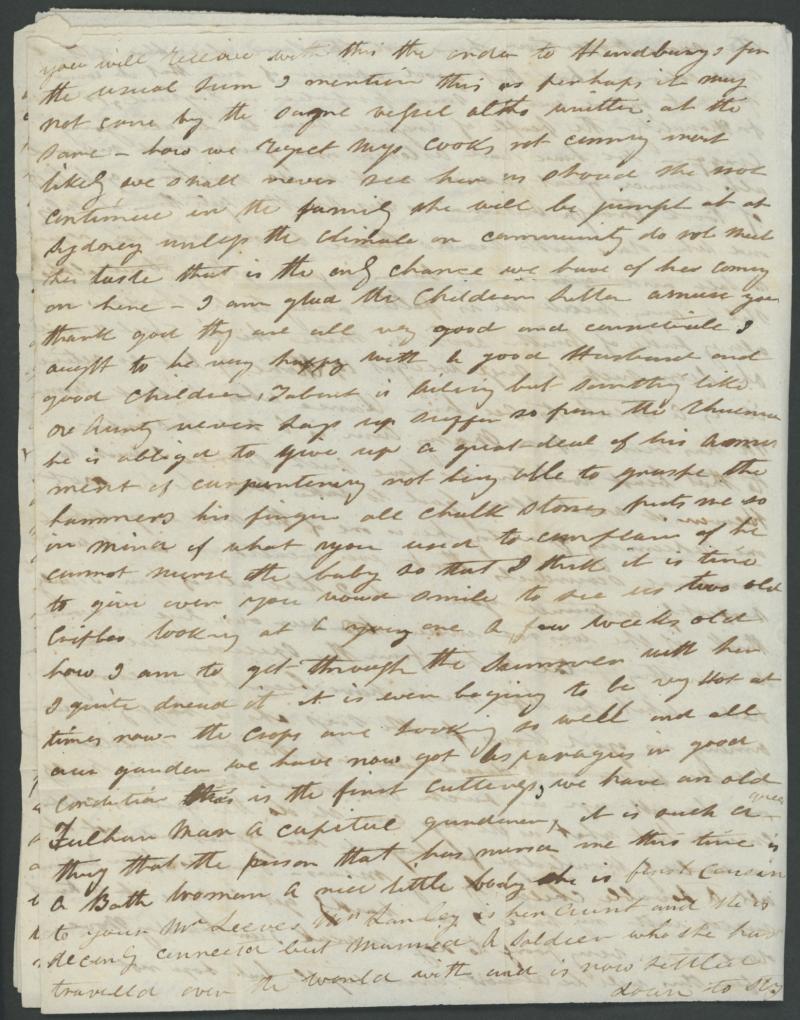 you will receive with this the order to Handburys for
the usual sum I mention this as perhaps it may
not come by the same vessel altho written at the
same - how we regret Miss Cooks not coming most
likely we shall never see her as should she not
continue in the family she will be jumpt at at
Sydney unless the climate or community do not meet
her taste that is the only chance we have of her coming
on here - I am glad the Childrens letter amuse you
thank god they are all very good and I
aught to be very happy with a good Husband and
good Children, Talbut is ailing but something like
Aunty never lays up suffer so from the
he is obligd to give up a great deal of his amuse
ment of carpentering not being able to graspe the
hammers his finger all chalk stones puts me so
in mind of what you used to complain of he
cannot nurse the baby so that I think it is time
to give over you woud smile to see us two old
Criples looking at a young one a few weeks old
how I am to get through the Summer with her
I quite dread it it is even begining to be very Hot at
times now - the crops are looking so well and all
our garden we have now got Asparagus in good
Condition this is the first cuttings, we have an old
Fulham Man a capital gardener, it is such a great
thing that the person that has nursd me this time is
a Bath Woman a nice little body she is first Cousin
to your Mr Leeves Mrs is her Aunt and she is
decently connectd but Married a Soldier who she has
travelld over the world with and is now settled
down to